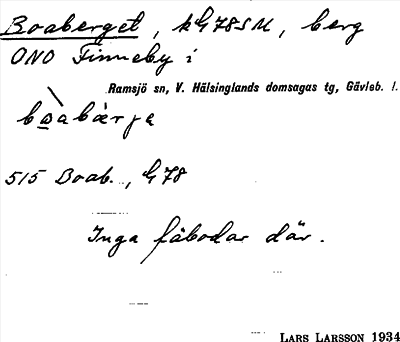 Boaberget, kG78SM, berg
ONO Finneby i
Ramsjö sn, V. Hälsinglands domsagas tg, Gävleb. l.
boabàrja
515 Boab., G78
Inga fäbodar där.
LARS LARSSON 1934